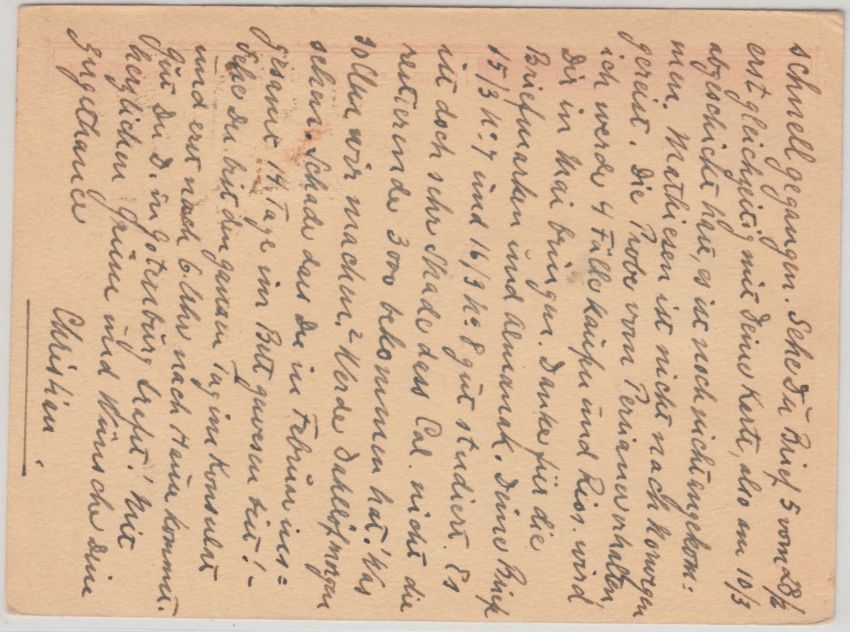 schnell gegangen. Sehe Du Brief 5 vom 28/2
erst gleichzeitig mit Deine Karte, also am 10/3
abgeschickt hast, es ist noch nicht angekom=
men. Mathiesen ist nicht nach Norwegen
gereist. Die Probe vom Persianer erhalten,
ich werde 4 Fülle kaufen und wird
Dir in Mai bringen. Danke für die
Briefmarken und Almanak. Deine Brief
15/3 No 7 und 16/3 No 8 gut studiert. Es
ist doch sehr Skade dass Cal. nicht die
restierende 300 bekommen hat! Was
sollen wir machen? Werde Dahllöf morgen
sehen. Schade dass Du in Februar ins=
gesamt 14 Tage im Bett gewesen bist! -
Sehe Du bist den ganzen Tag im Konsulat
und erst nach 6 Uhr nach Hause kommst.
Gut Du D. in Gotenburg trefst! Mit
herzlichen Grüsse und Wünsche Deine
Zugethaner
Christian